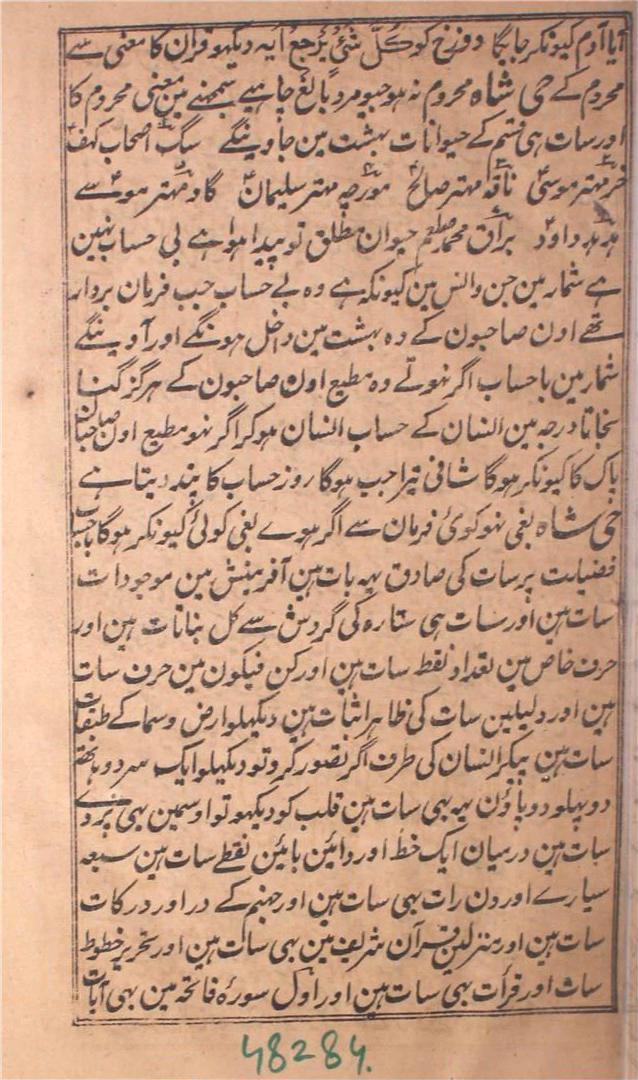 آیا آدم کیونکر جایگا دوزخ کو کُلّ شَئیٍ یَرجعُ آیہ دیکھو قران کا معنی سے
محروم کے حی شاہ محروم نہ ہو جیو مرد بالغ چاہیے سمجھنے مین معنی محروم کا
اور سات ہی قسم کے حیوانات بہشت مین جاوینگے سگ اصحاب کہف
خر مہتر موسیٰ ناقہ مہتر صالح مورچہ مہتر سلیمان گاو مہتر موسے
ہدہد داود براق محمد صلعم حیوان مطلق تو پیدا ہوا ہے بی حساب نہین
ہے شمار مین جن وانس مین کیونکہ ہے وہ بے حساب جب فرمان بردار
تھے اون صاحبون کے وہ بہشت مین داخل ہونگے اور آوینگے
شمار مین با حساب اگر نہوتے وہ مطیع اون صاحبون کے ہرگز گنا
نجاتا درجہ مین انسان کے حساب انسان ہوکر اگر نہو مطیع اون صاحبان
پاک کا کیونکر ہوگا شافی تیرا جب ہوگا روز حساب کا پند دیتا ہے
حی شاہ بغی نہو کوئی فرمان سے اگر ہوے بغی کوئی کیونکر ہوگا با حساب
فضیلت پر سات کی صادق یہہ بات ہین آفرینش مین موجودات
سات ہین اور سات ہی ستارہ کی گردش سے کل بناتات ہین اور
حرف خاص مین تعداد نقط سات ہین اور کن فیکون مین حرف سات
ہین اور دلیلین سات کی ظاہر اثبات ہین دیکھلو ارض وسما کے طبقات
سات ہین پیکر انسان کی طرف اگر تصور کرو تو دیکھلو ایک سر دو ہاتھ
دو پہلو دو پاؤن یہہ بھی سات ہین قلب کو دیکھو تو اوسمین بھی پردے
سات ہین درمیان ایک خط اور دائین بائین نقطے سات ہین سبعہ
سیارے اور دن رات بھی سات ہین اور جہنم کے در اور درکات
سات ہین اور منزلین قرآن شریف مین بھی سات ہین اور تحریر خطوط
سات اور قرأت بھی سات ہین اور اول سورۂ فاتحہ مین بھی آیات
48284.